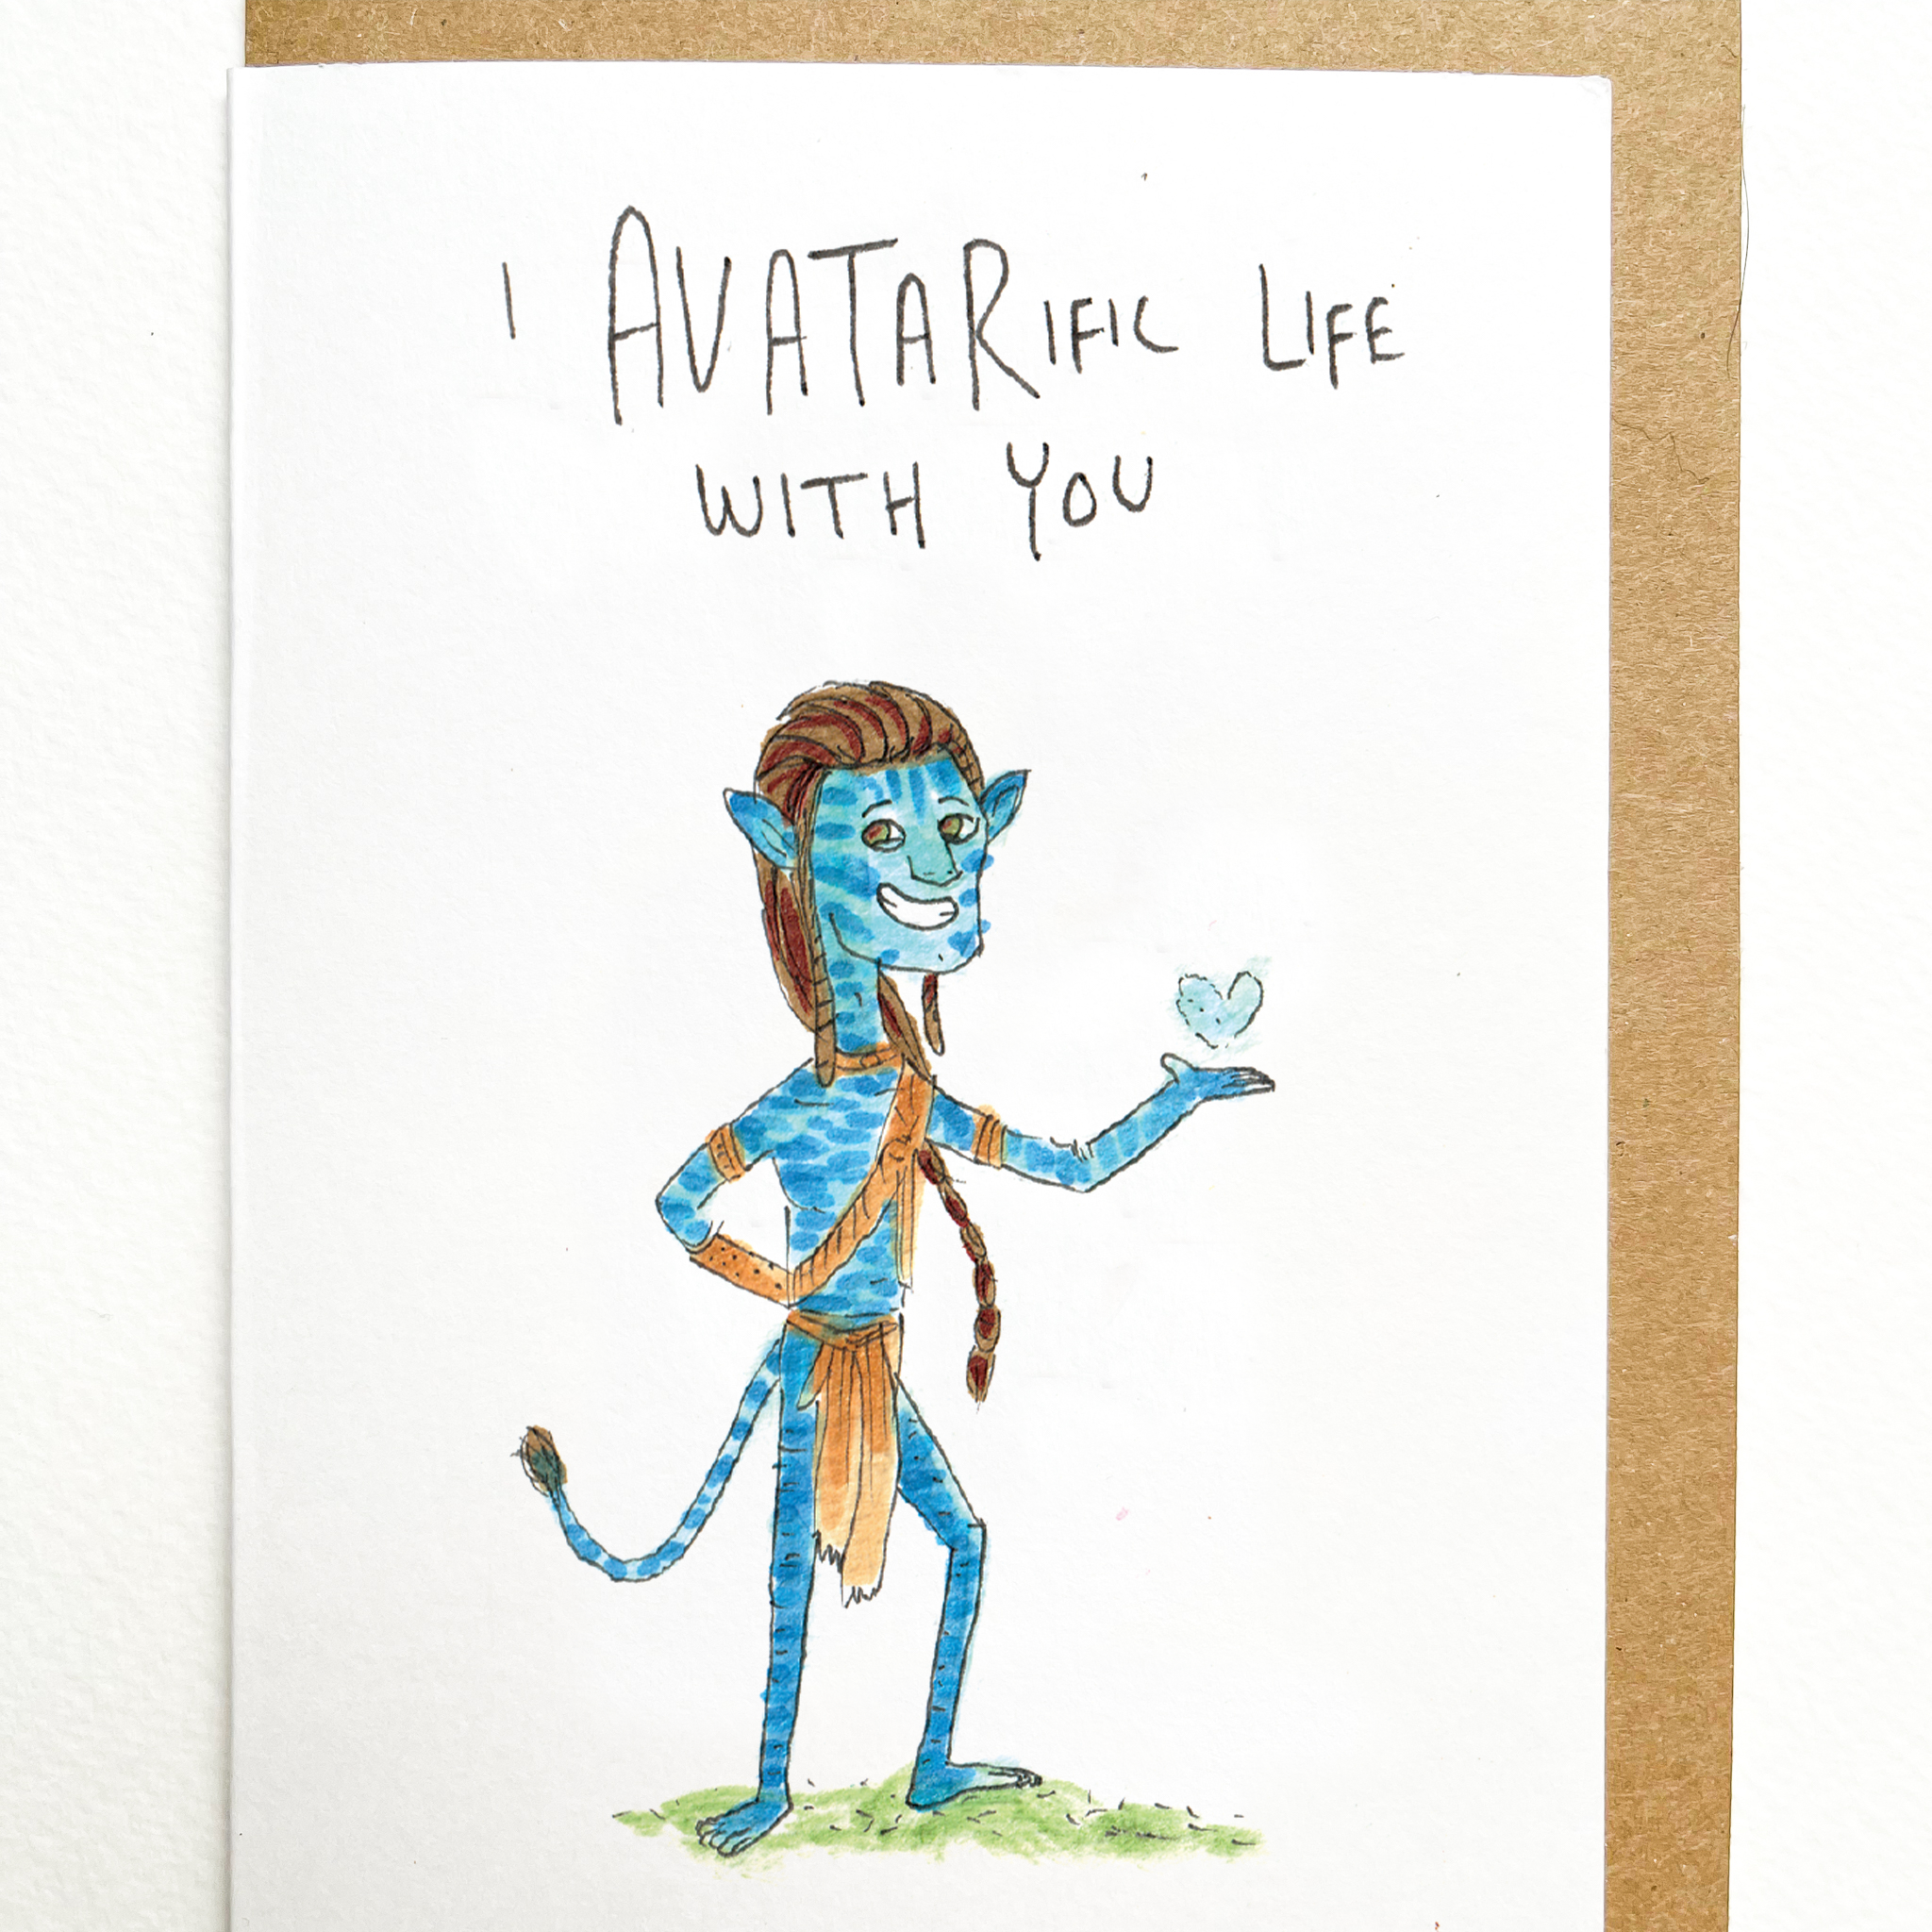 I AVATARIFIC LIFE
WITH YOU